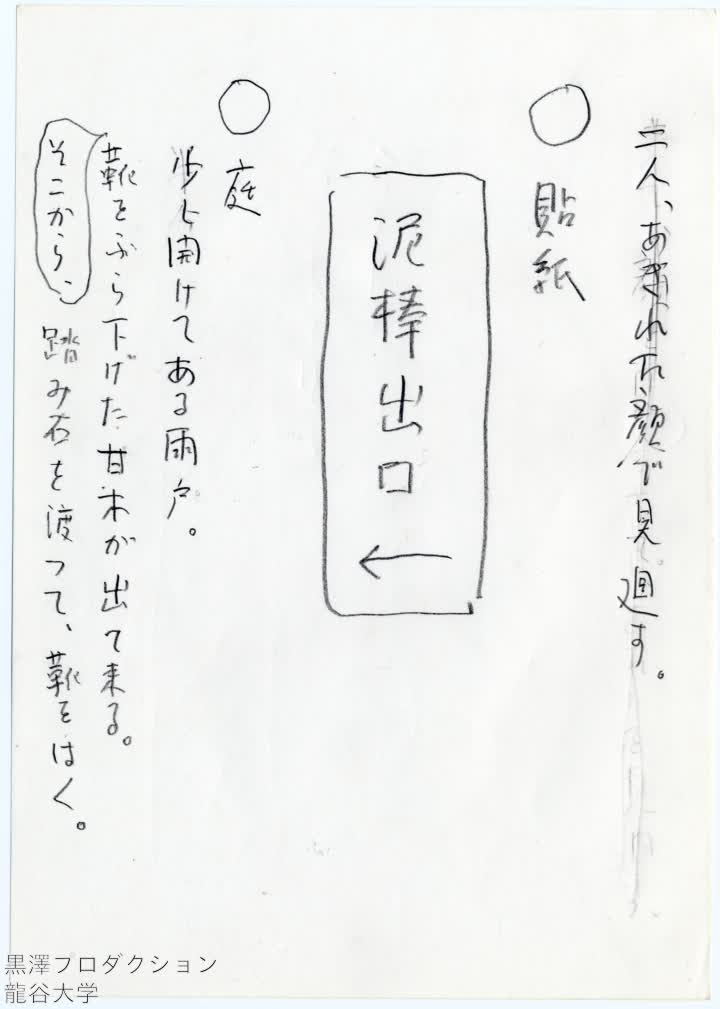 二人、あきれた顔で見廻す。
○ 貼紙
泥棒出口
←
○ 庭
少し開けてある雨戸。
靴をぶら下げた甘木が出て来る。
そこから、踏み石を渡って、靴をはく。
黒澤プロダクション
龍谷大学